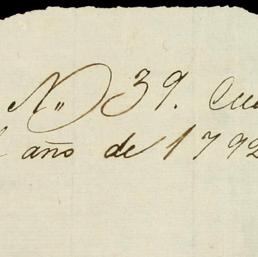 No. 39. Cue
l año de 1792